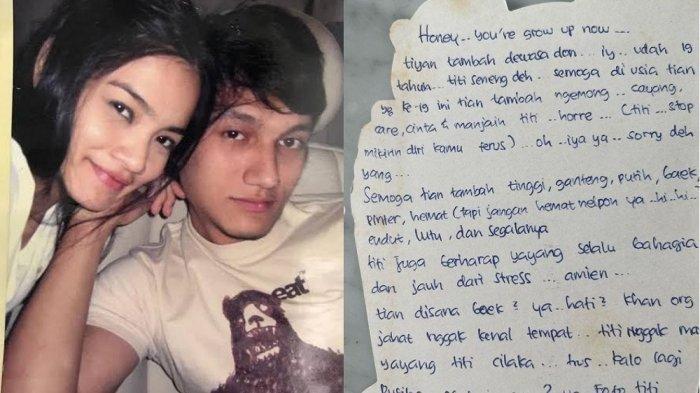 eat
Honey.. you're grow up now ....
tiyan tambah dewasa dan ... iy.. udah 19
tahun... titi seneng deh.. semoga di usia tian
yg ke-19 ini tian tambah ngemong.. cayang,
care, cinta & manjain titi.. horre... (titi ... stop
mikirin diri kamu terus) ... oh.. iya ya.. sorry deh
yang...
Semoga tian tambah tinggi, ganteng, putih, baek,
pinter, hemat (tapi jangan hemat nelpon ya ..hi..hi..
endut, lutu, dan segalanya
titi juga berharap yayang selalu bahagia
dan jauh dari stress ... amien ...
tian disana baek? ya.. hati? khan org
jahat nggak kenal tempat.. titi nggak ma
yayang titi cilaka ... trus.. kalo lagi
? ya foto titi